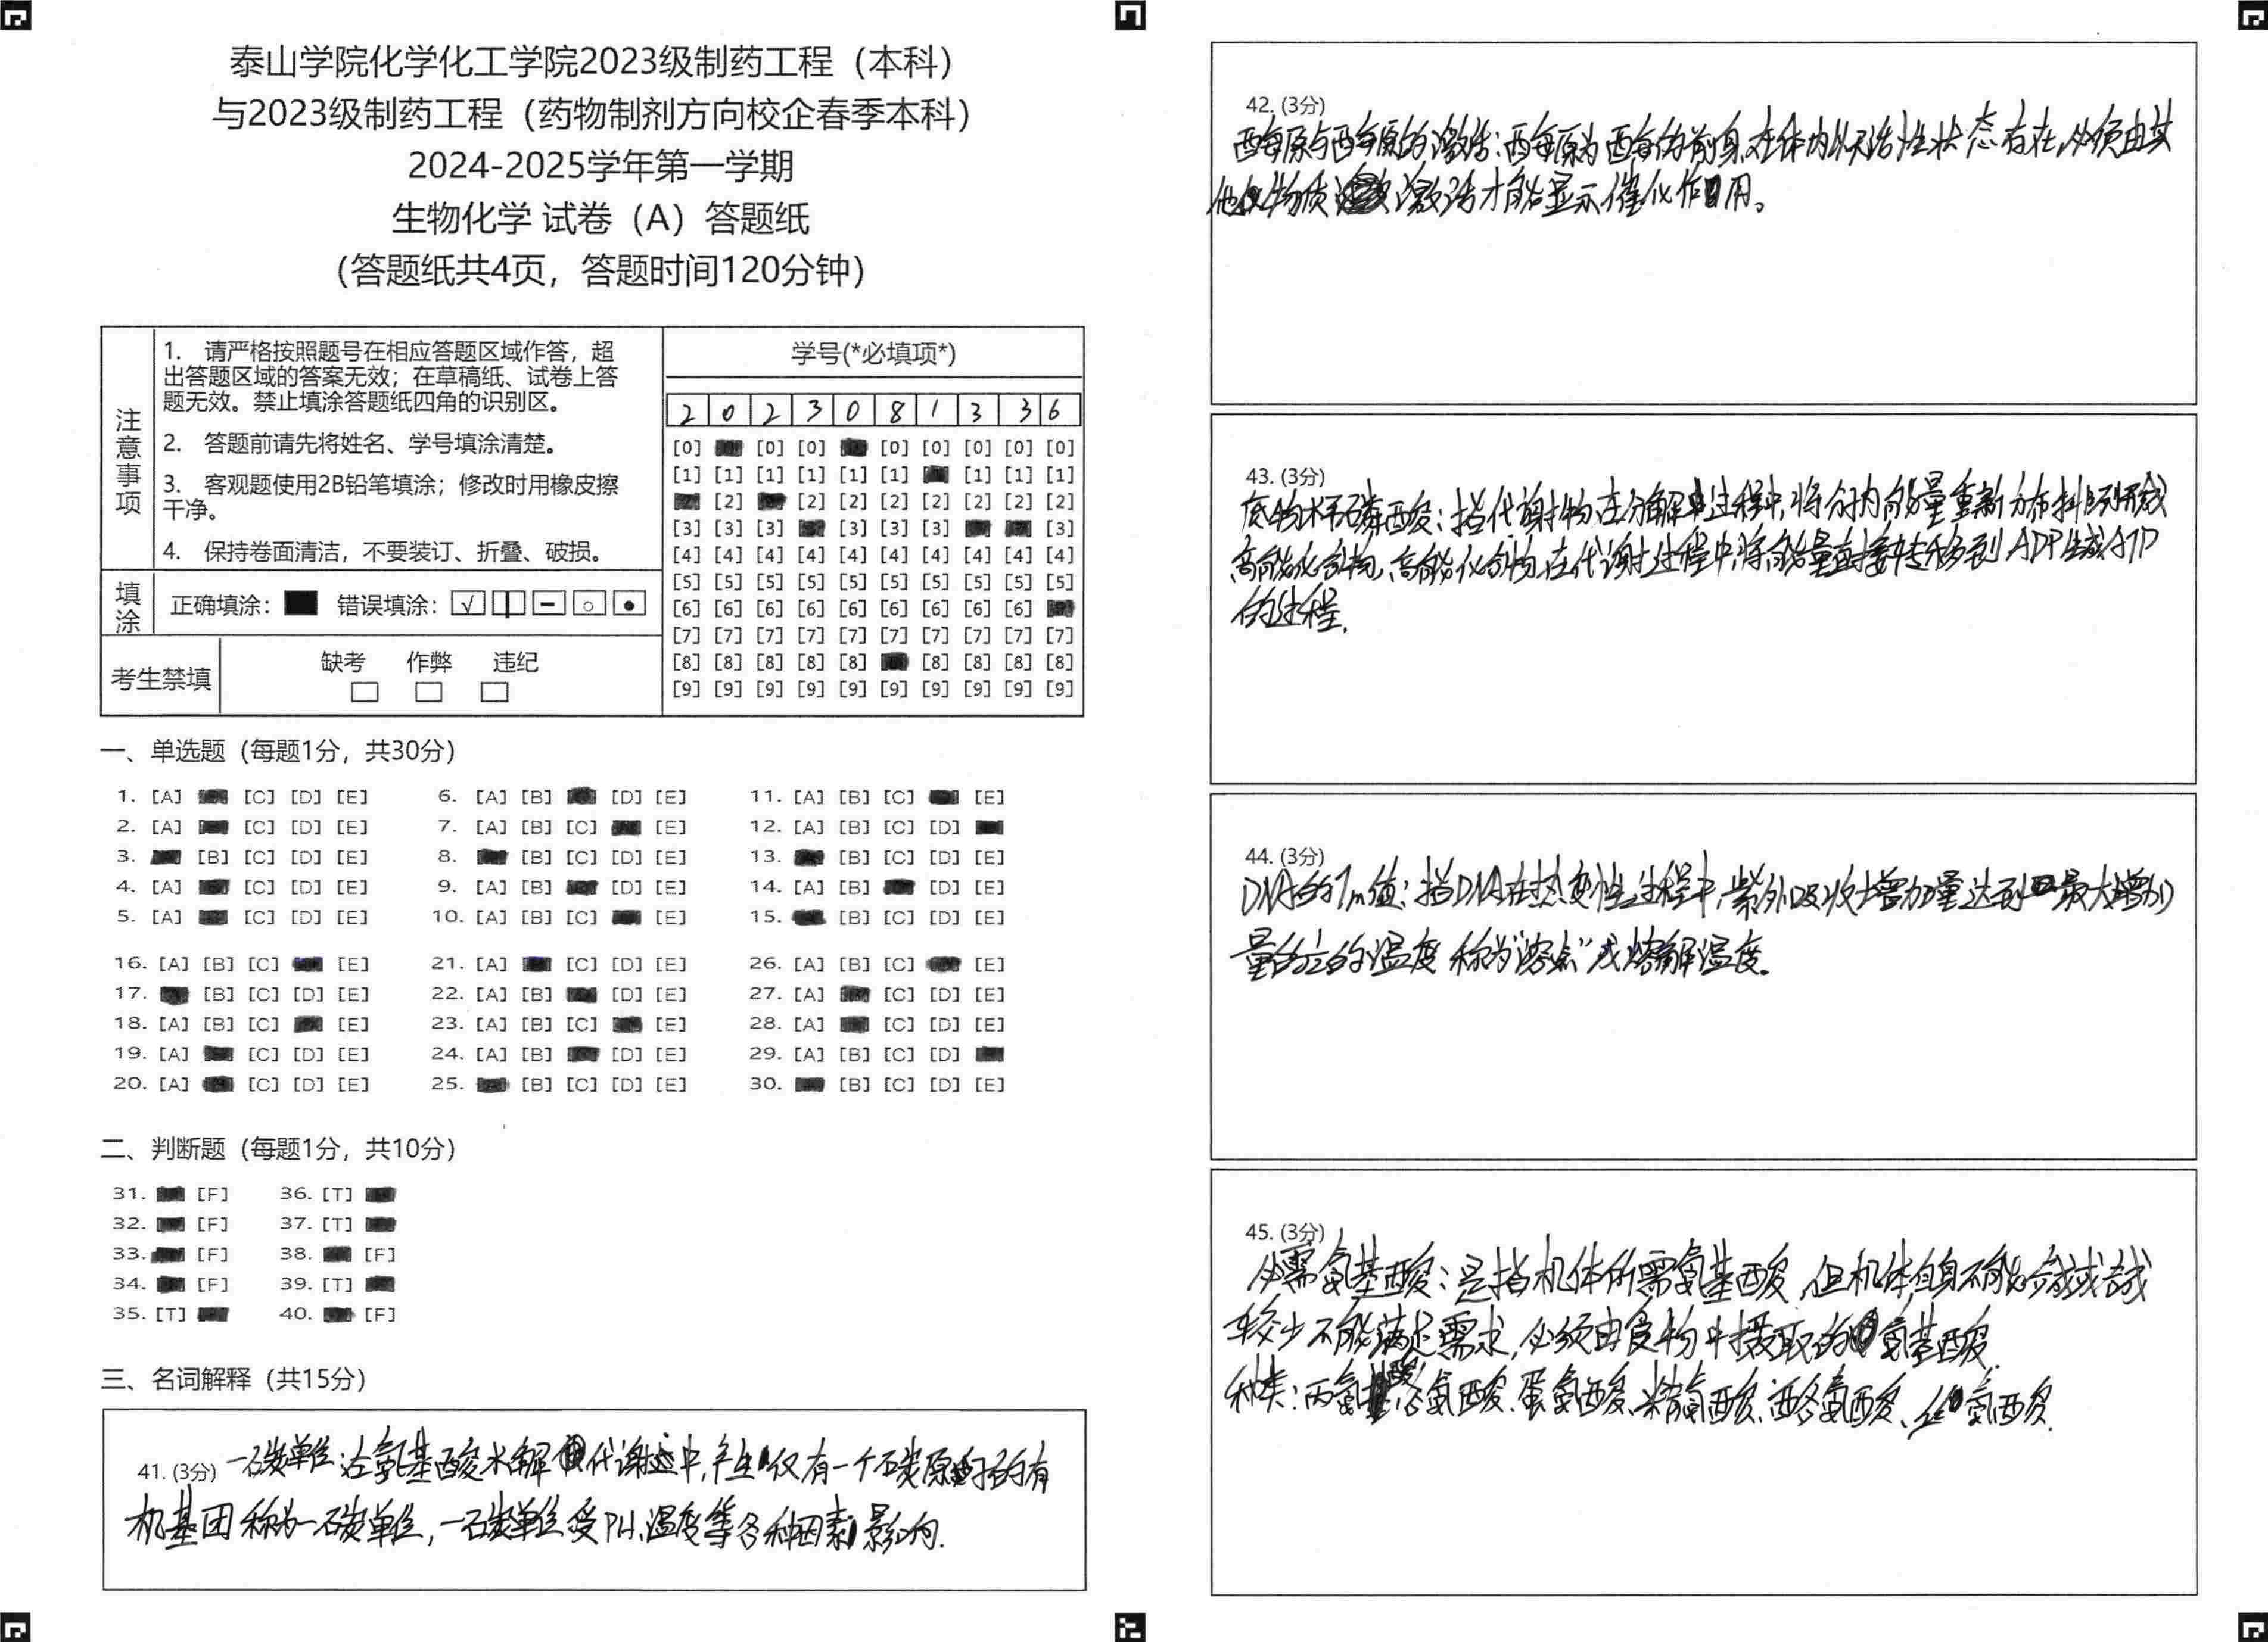 泰山学院化学化工学院2023级制药工程（本科）
与2023级制药工程（药物制剂方向校企春季本科）
2024-2025学年第一学期
生物化学 试卷（A）答题纸
（答题纸共4页，答题时间120分钟）
注意事项
1. 请严格按照题号在相应答题区域作答，超
出答题区域的答案无效；在草稿纸、试卷上答
题无效。禁止填涂答题纸四角的识别区。
2. 答题前请先将姓名、学号填涂清楚。
3. 客观题使用2B铅笔填涂；修改时用橡皮擦
干净。
4. 保持卷面清洁，不要装订、折叠、破损。
填涂
正确填涂： 错误填涂：
考生禁填
缺考 作弊 违纪
学号(*必填项*)
2 0 2 3 0 8 1 3 3 6
[0] [0] [0] [0] [0] [0] [0] [0]
[1] [1] [1] [1] [1] [1] [1] [1] [1]
[2] [2] [2] [2] [2] [2] [2] [2]
[3] [3] [3] [3] [3] [3] [3]
[4] [4] [4] [4] [4] [4] [4] [4] [4] [4]
[5] [5] [5] [5] [5] [5] [5] [5] [5] [5]
[6] [6] [6] [6] [6] [6] [6] [6] [6]
[7] [7] [7] [7] [7] [7] [7] [7] [7] [7]
[8] [8] [8] [8] [8] [8] [8] [8] [8]
[9] [9] [9] [9] [9] [9] [9] [9] [9] [9]
一、单选题（每题1分，共30分）
1. [A] [C] [D] [E] 6. [A] [B] [D] [E] 11. [A] [B] [C] [E]
2. [A] [C] [D] [E] 7. [A] [B] [C] [E] 12. [A] [B] [C] [D]
3. [B] [C] [D] [E] 8. [B] [C] [D] [E] 13. [B] [C] [D] [E]
4. [A] [C] [D] [E] 9. [A] [B] [D] [E] 14. [A] [B] [D] [E]
5. [A] [C] [D] [E] 10. [A] [B] [C] [E] 15. [B] [C] [D] [E]
16. [A] [B] [C] [E] 21. [A] [C] [D] [E] 26. [A] [B] [C] [E]
17. [B] [C] [D] [E] 22. [A] [B] [D] [E] 27. [A] [C] [D] [E]
18. [A] [B] [C] [E] 23. [A] [B] [C] [E] 28. [A] [C] [D] [E]
19. [A] [C] [D] [E] 24. [A] [B] [D] [E] 29. [A] [B] [C] [D]
20. [A] [C] [D] [E] 25. [B] [C] [D] [E] 30. [B] [C] [D] [E]
二、判断题（每题1分，共10分）
31. [F] 36. [T]
32. [F] 37. [T]
33. [F] 38. [F]
34. [F] 39. [T]
35. [T] 40. [F]
三、名词解释（共15分）
41. (3分) 一碳单位:在氨基酸水解代谢中,产生仅有一个碳原子的有
机基团称为一碳单位,一碳单位受PH、温度等各种因素影响.
42. (3分)
酶原与酶原的激活:酶原为酶的前身,在体内以无活性状态存在,必须由其
他物质激活才能显示催化作用。
43. (3分)
底物水平磷酸:指代谢物在分解过程中,将分子内能量重新分布排列形成
高能化合物,高能化合物在代谢过程中,将能量直接转移到ADP生成ATP
的过程.
44. (3分)
DNA的Tm值:指DNA在热变性过程中,紫外吸收增加量达到最大增加
量的½的温度 称为"溶点"或熔解温度。
45. (3分)
必需氨基酸:是指机体所需氨基酸,但机体自身不能合成或合成
较少不能满足需求,必须由食物中摄取的氨基酸.
种类:丙氨酸、谷氨酸、蛋氨酸、精氨酸、酪氨酸、氨酸.